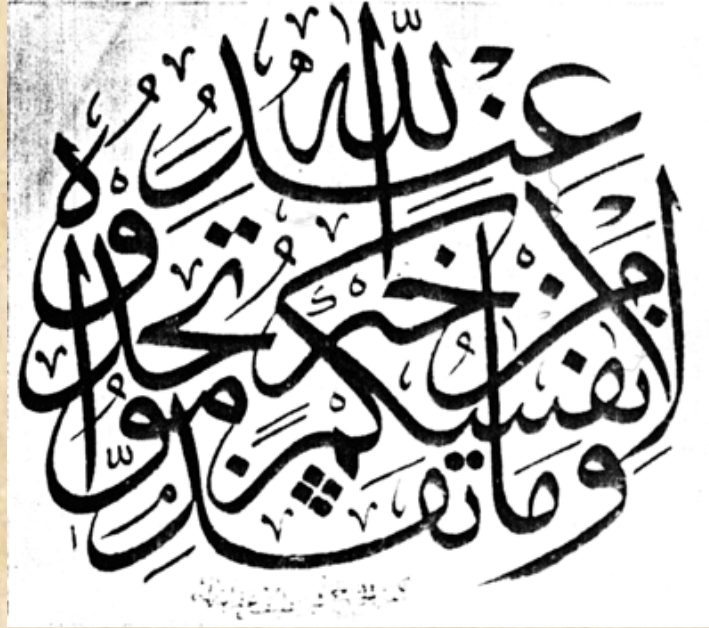 وما تقدموا
لأنفسكم
من خير تجدوه
عند الله